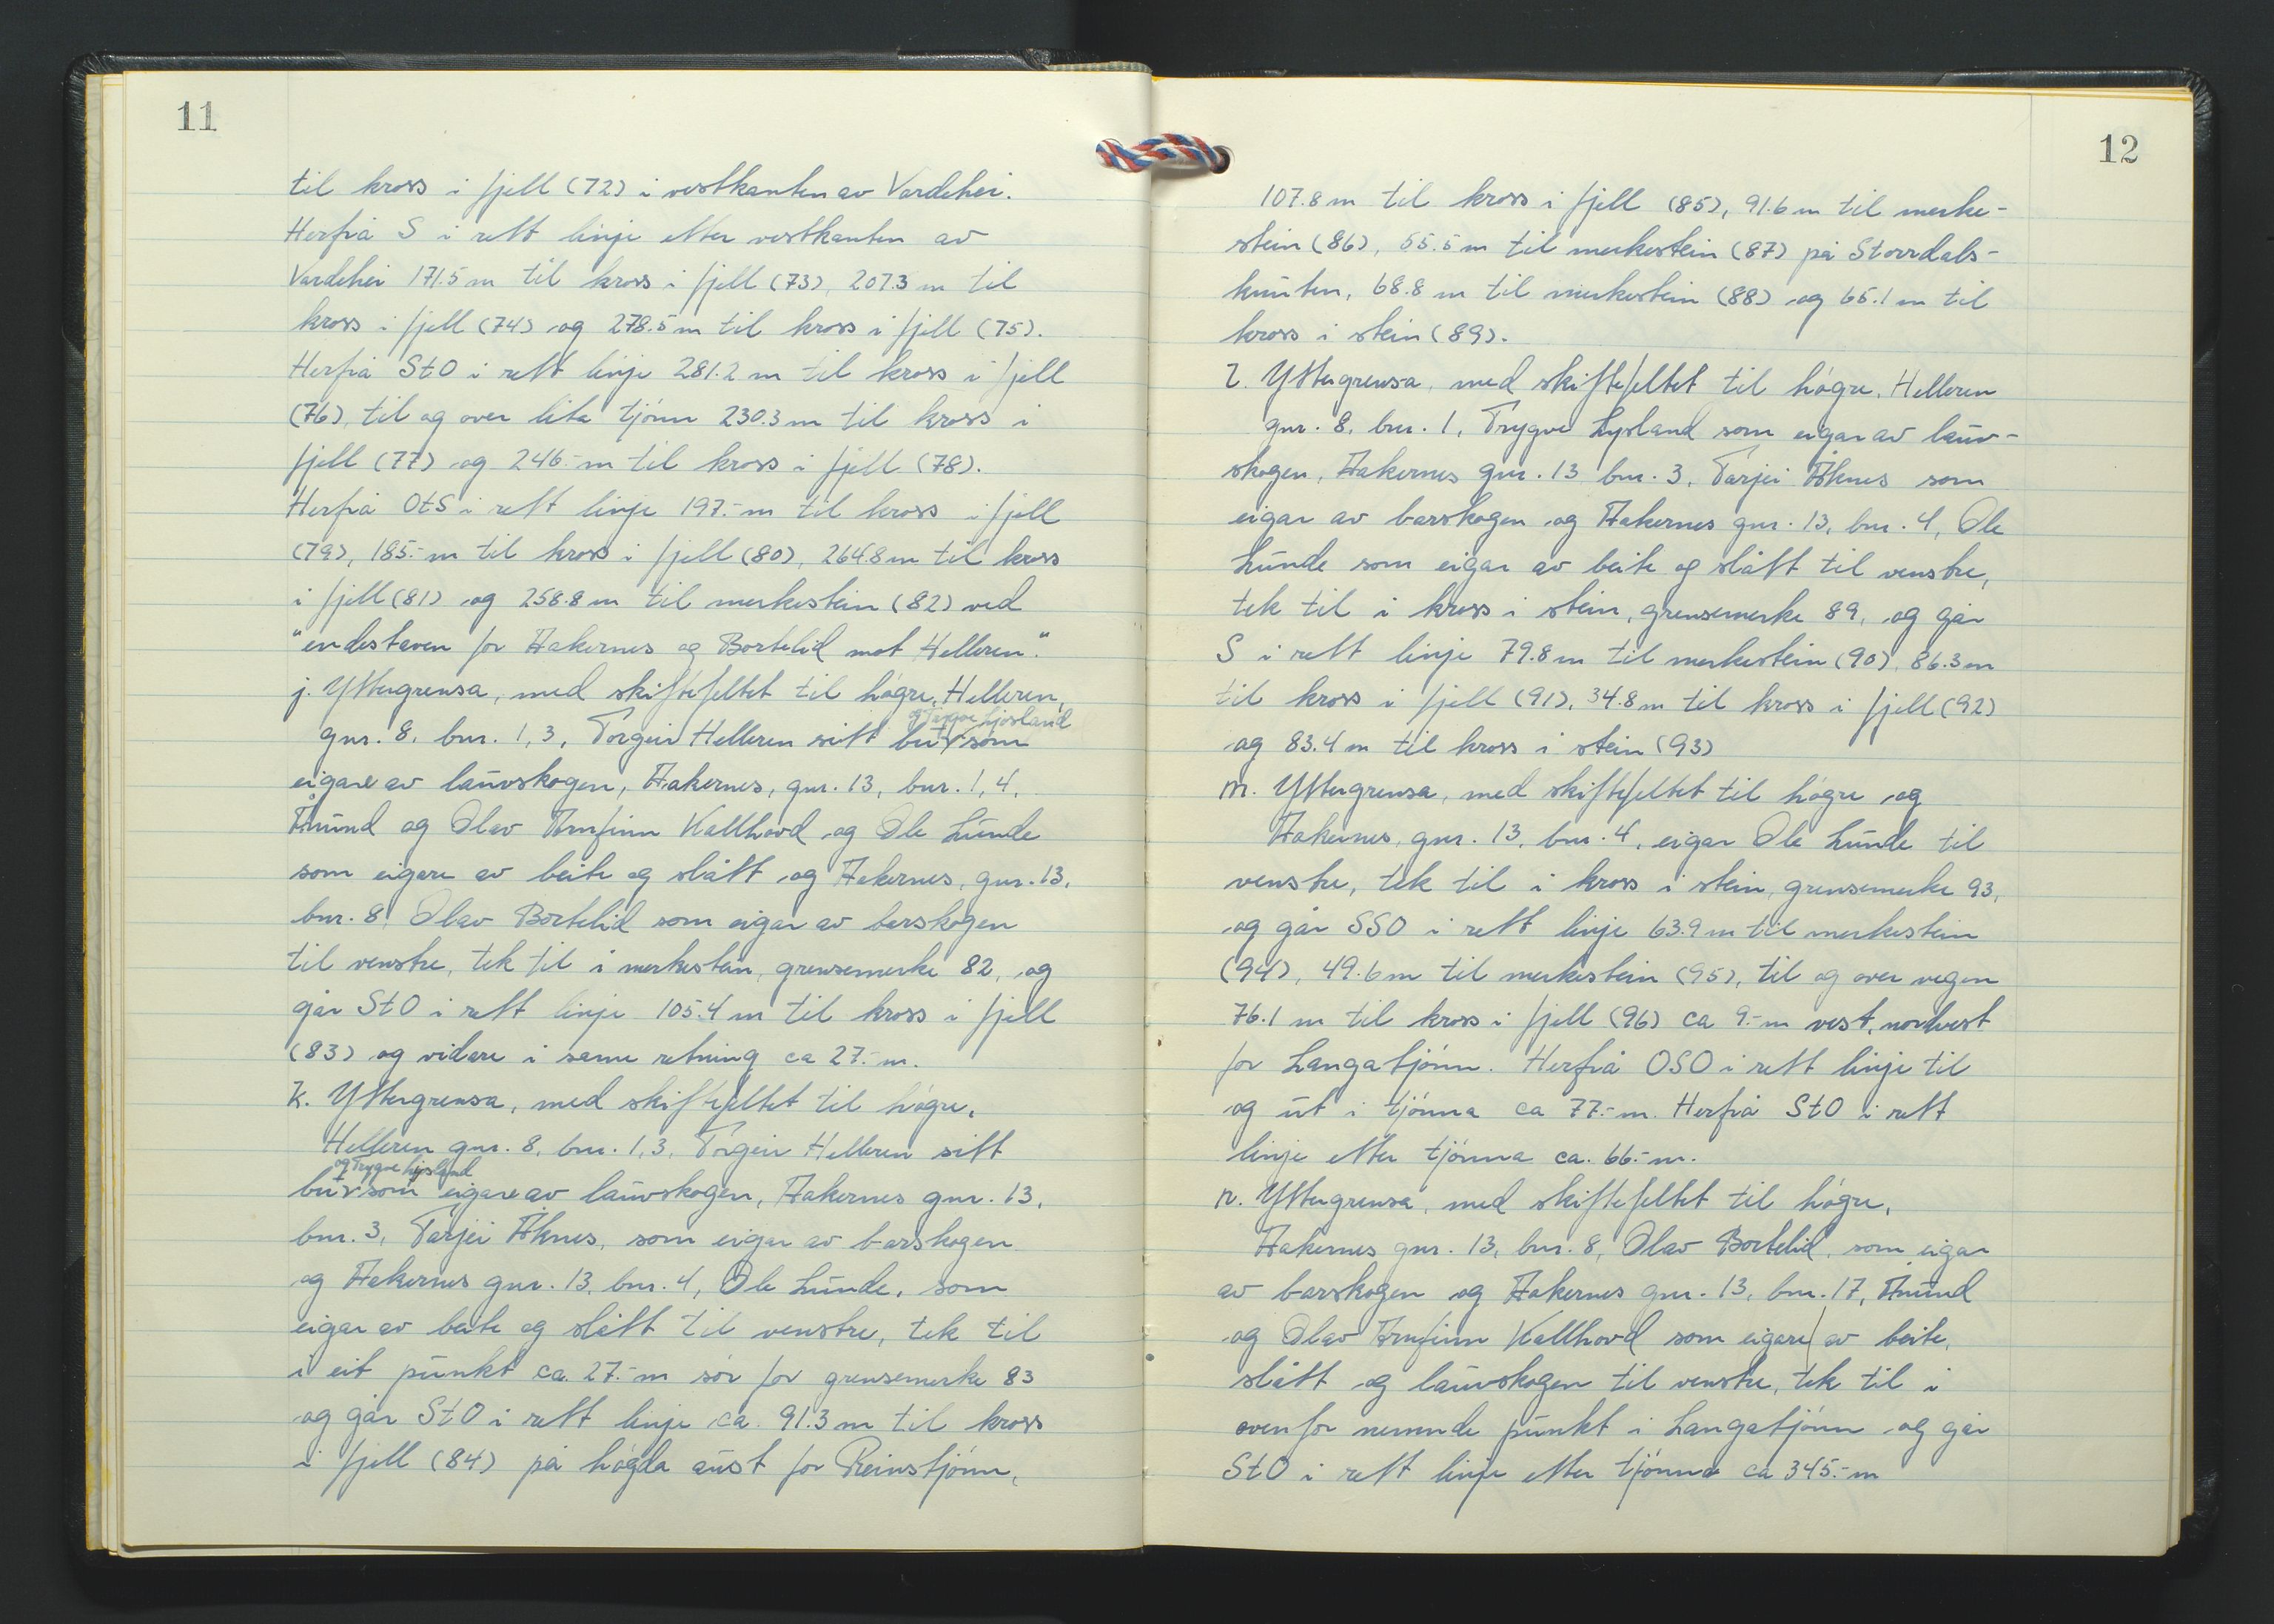 11
til kross i fjell (72) i vestkanten av Vardehei.
Herfrå S i rett linje etter vestkanten av
Vardehei 171.5 m til kross i fjell (73), 207.3 m til
kross i fjell (74) og 278.5 m til kross i fjell (75).
Herfrå StO i rett linje 281.2 m til kross i fjell
(76), til og over lita tjönn 230.3 m til kross i
fjell (77) og 246.- m til kross i fjell (78).
Herfrå OtS i rett linje 197.- m til kross i fjell
(79), 185.- m til kross i fjell (80), 264.8 m til kross
i fjell (81) og 258.8 m til merkestein (82) ved
"endestaven for Aakernes og Bortelid mot Helleren".
j. Yttergrensa, med skiftefeltet til högre, Helleren,
og Trygve Ljosland
gnr. 8, bnr. 1, 3, Torgeir Helleren sitt bu som
eigare av lauvskogen, Aakernes, gnr. 13, bnr. 1, 4,
Åmund og Olav Arnfinn Kallhovd og Ole Lunde
som eigare av beite og slått og Aakernes, gnr. 13,
bnr. 8, Olav Bortelid som eigar av barskogen
til venstre, tek til i merkestein, grensemerke 82, og
går StO i rett linje 105.4 m til kross i fjell
(83) og vidare i same retning ca 27.- m.
k. Yttergrensa, med skiftefeltet til högre,
Helleren gnr. 8, bnr. 1, 3, Torgeir Helleren sitt
og Trygve Ljosland
bu som eigare av lauvskogen, Aakernes gnr. 13,
bnr. 3, Tarjei Åknes, som eigar av barskogen
og Aakernes gnr. 13, bnr. 4, Ole Lunde, som
eigar av beite og slått til venstre, tek til
i eit punkt ca. 27.- m sör for grensemerke 83
og går StO i rett linje ca. 91.3 m til kross
i fjell (84) på högda aust for Reinstjönn,
12
107.8 m til kross i fjell (85), 91.6 m til merke-
stein (86), 55.5 m til merkestein (87) på Storrdals-
knuten, 68.8 m til merkestein (88) og 65.1 m til
kross i stein (89).
l. Yttergrensa, med skiftefeltet til högre, Helleren
gnr. 8, bnr. 1, Trygve Lysland som eigar av lauv-
skogen, Aakernes gnr. 13 bnr. 3, Tarjei Åknes som
eigar av barskogen og Aakernes gnr. 13, bnr. 4, Ole
Lunde som eigar av beite og slått til venstre,
tek til i kross i stein, grensemerke 89, og går
S i rett linje 79.8 m til merkestein (90), 86.3 m
til kross i fjell (91), 34.8 m til kross i fjell (92)
og 83.4 m til kross i stein (93)
m. Yttergrensa, med skiftefeltet til högre og
Aakernes, gnr. 13, bnr. 4, eigar Ole Lunde til
venstre, tek til i kross i stein, grensemerke 93,
og går SSO i rett linje 63.9 m til merkestein
(94), 49.6 m til merkestein (95), til og over vegen
76.1 m til kross i fjell (96) ca 9.- m vest, nordvest
for Langatjönn. Herfrå OSO i rett linje til
og ut i tjönna ca 77.- m. Herfrå StO i rett
linje etter tjönna ca. 66.- m.
n. Yttergrensa, med skiftefeltet til högre,
Aakernes gnr. 13, bnr. 8, Olav Bortelid, som eigar
av barskogen og Aakernes gnr. 13, bnr. 17, Åmund
og Olav Arnfinn Kallhovd som eigare av beite,
slått og lauvskogen til venstre, tek til i
ovenfor nemnde punkt i Langatjönn og går
StO i rett linje etter tjönna ca 345.- m